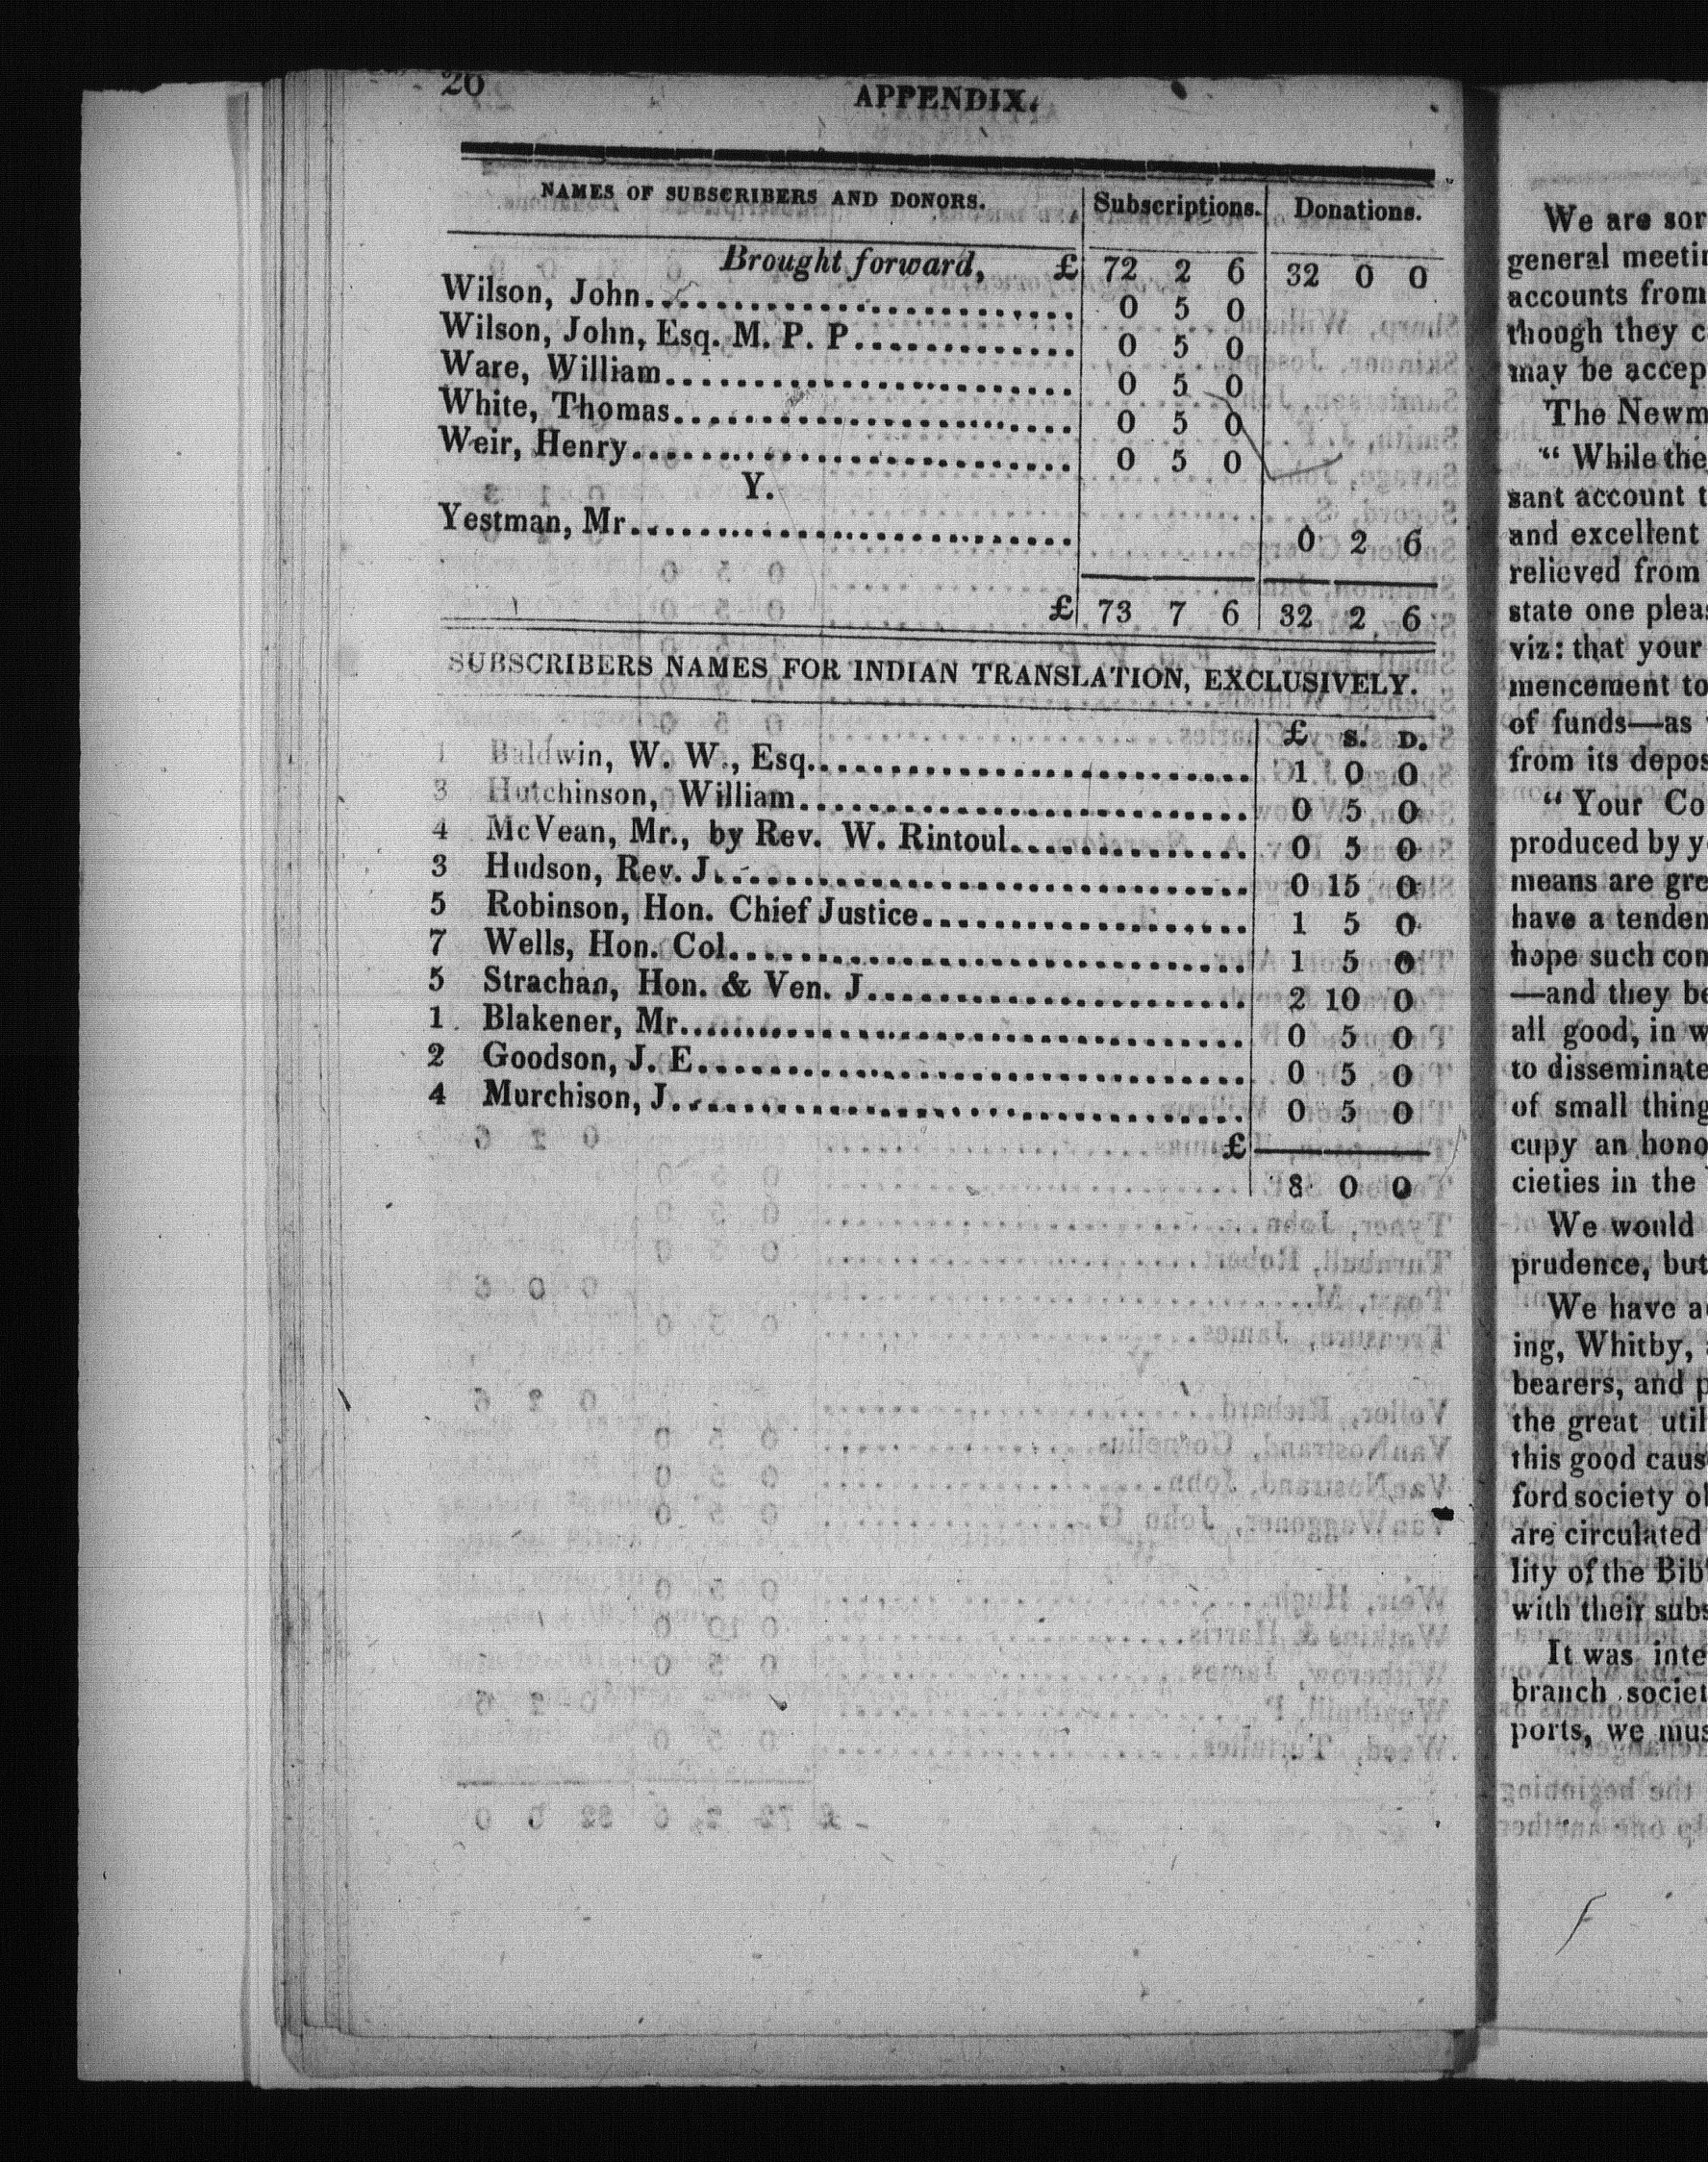 20
APPENDIX.
NAMES OF SUBSCRIBERS AND DONORS. Subscriptions. Donations.
Brought forward, £ 72 2 6 32 0 0
Wilson, John 0 5 0
Wilson, John, Esq. M. P. P. 0 5 0
Ware, William 0 5 0
White, Thomas 0 5 0
Weir, Henry 0 5 0
Y.
Yestman, Mr. 0 2 6
£ 73 7 6 32 2 6
SUBSCRIBERS NAMES FOR INDIAN TRANSLATION, EXCLUSIVELY.
£ S. D.
1 Baldwin, W. W., Esq. 1 0 0
3 Hutchinson, William 0 5 0
4 McVean, Mr., by Rev. W. Rintoul 0 5 0
3 Hudson, Rev. J. 0 15 0
5 Robinson, Hon. Chief Justice 1 5 0
7 Wells, Hon. Col. 1 5 0
5 Strachan, Hon. & Ven. J. 2 10 0
1 Blakener, Mr. 0 5 0
2 Goodson, J. E. 0 5 0
4 Murchison, J. 0 5 0
£
8 0 0
We are sor
general meetin
accounts from
though they c
may be accep
The Newm
“ While the
sant account t
and excellent
relieved from
state one pleas
viz: that your
mencement to
of funds—as
from its depos
“ Your Co
produced by y
means are gre
have a tenden
hope such con
—and they be
all good, in w
to disseminate
of small thing
cupy an hono
cieties in the
We would
prudence, but
We have a
ing, Whitby,
bearers, and p
the great util
this good caus
ford society ol
are circulated
lity of the Bib
with their subs
It was inte
branch societ
ports, we mus